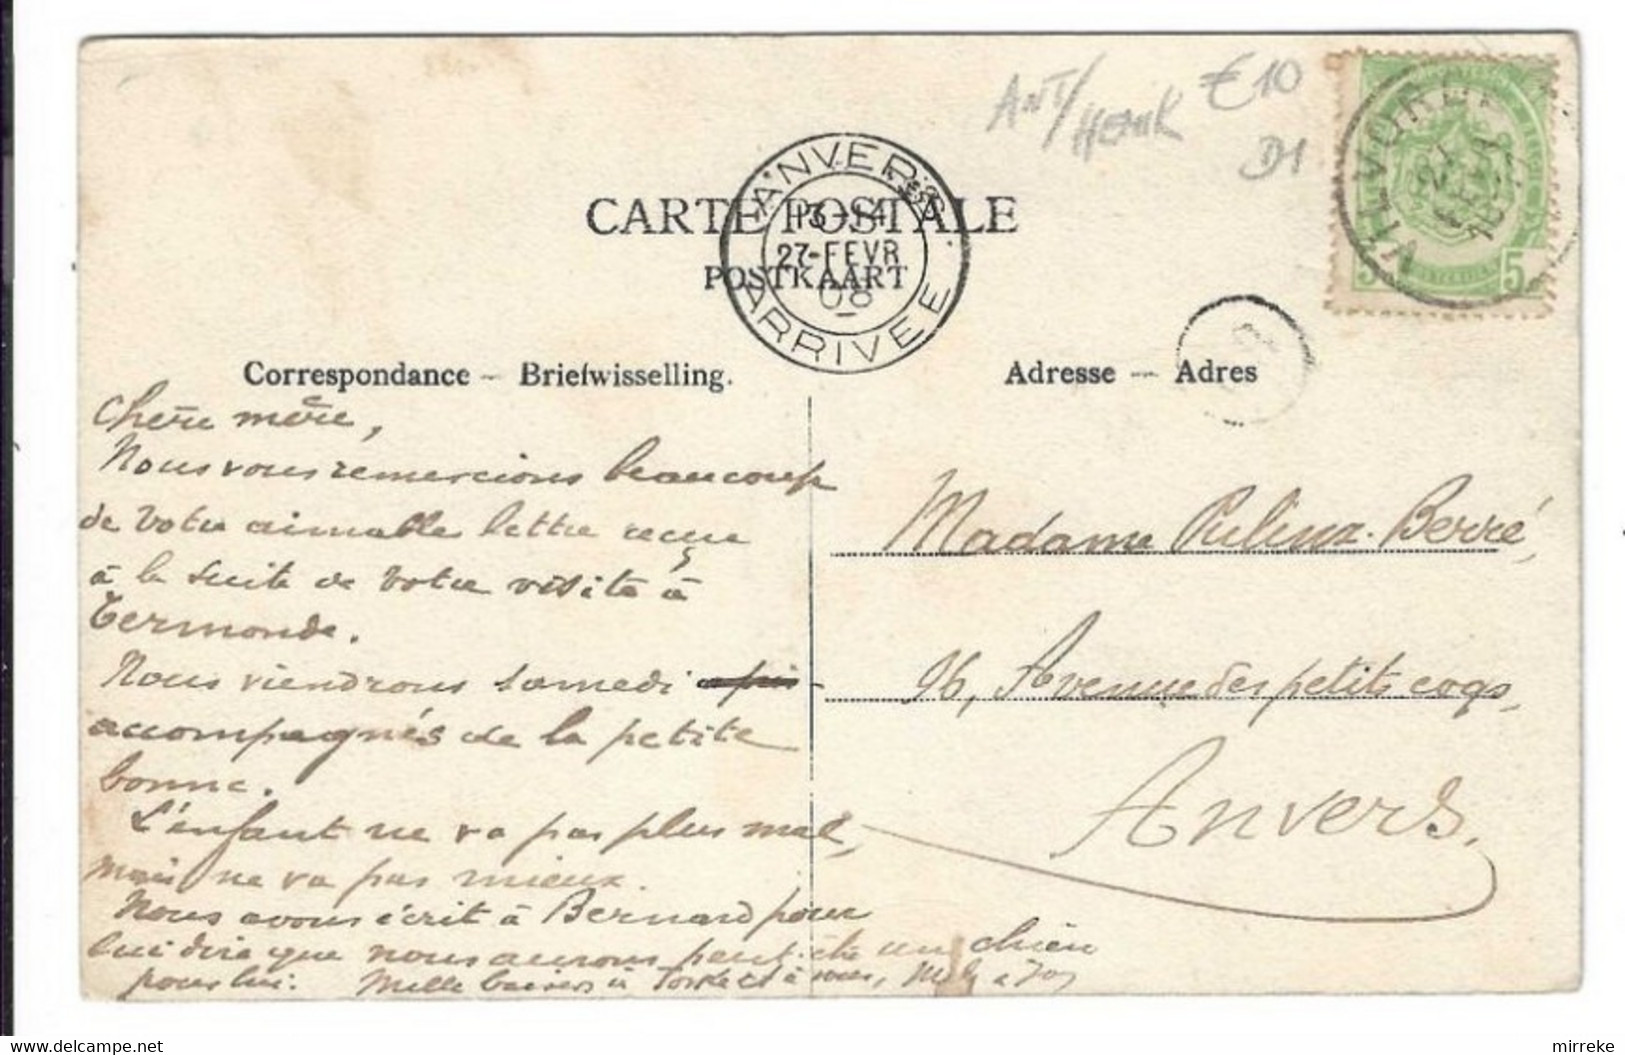 ANT/
HENK
€10
D1
VILVORDE
5 5
ANVERS
13-14
27-FEVR
08
ARRIVEE
CARTE POSTALE
POSTKAART
Correspondance – Briefwisselling.
Adresse — Adres
Chère mère,
Nous vous remercions beaucoup
de votre aimable lettre reçue
à la suite de votre visite à
Termonde.
Nous viendrons samedi
accompagnés de la petite
bonne.
L'enfant ne va pas plus mal,
mais ne va pas mieux.
Nous avons écrit à Bernard pour
lui dire que nous aurons peut-être un chien
pour lui. Mille baisers à et à vous,
Madame Berré,
96, Avenue des petits coqs,
Anvers.
© mirreke
https://www.delcampe.net
mirreke